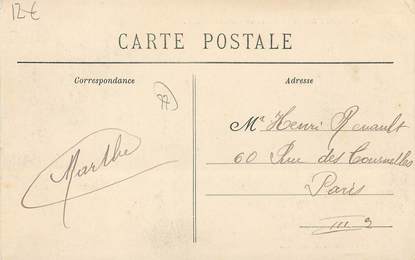 12€
CARTE POSTALE
Correspondance
Adresse
77
Marthe
Mr Henri Renault
60 Rue des Tournelles
Paris
III e